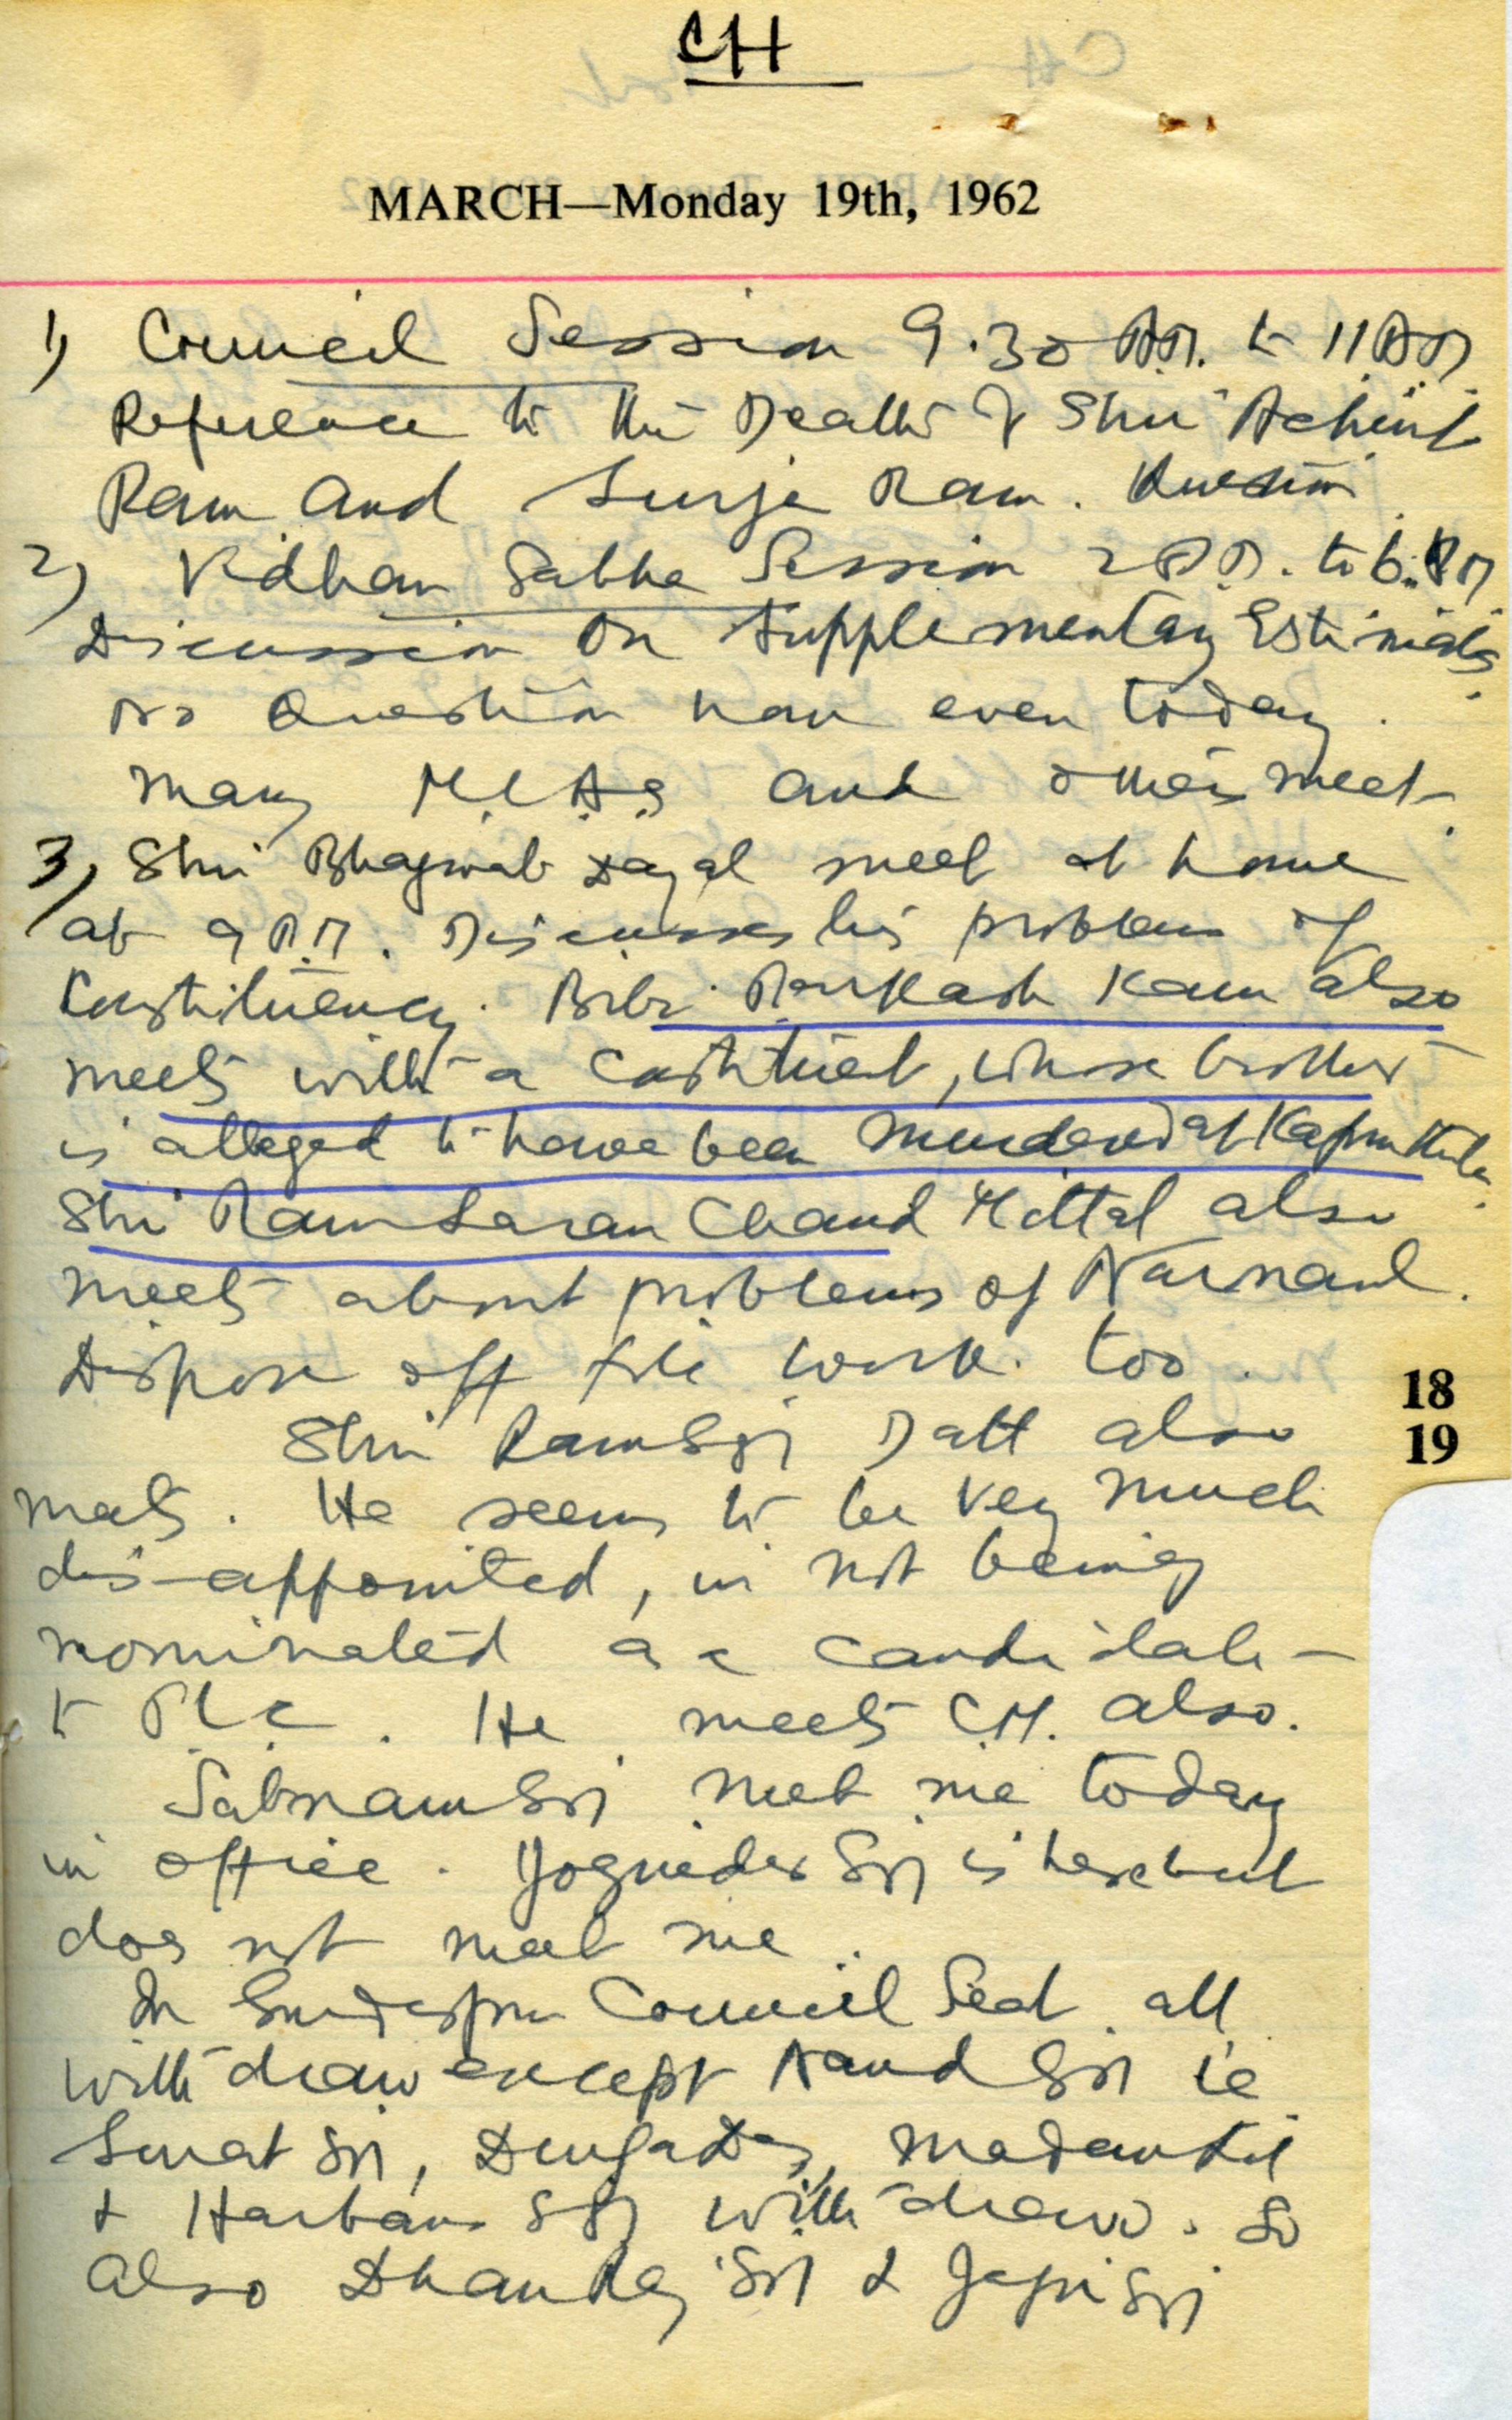 CH
MARCH—Monday 19th, 1962
1) Council Session 9.30 AM. to 11 AM
Reference to the Death of Shri Achint
Ram and Surja Ram. Question
2) Vidhan Sabha Session 2 P.M. to 6. PM
Discussion on Supplementary Estimates
No Question hour even today.
Many M.L.A.s and others meet.
3) Shri Bhagwat Dayal meet at home
at 9 P.M. Discusses his problem of
Constituency. Bibi Parkash Kaur also
meets with a constituent, whose brother
is alleged to have been murdered at Kapurthala.
Shri Ram Saran Chand Mittal also
meets about problems of Narnaul.
Dispose off file work too.
18
Shri Ram Sgh Datt also
19
meets. He seems to be very much
dis-appointed, in not being
nominated as a candidate
to M.L.C. He meets C.M. also.
Satnam Sgh meet me today
in office. Joginder Sgh is here but
does not meet me.
In Gurdaspur Council Seat all
withdraw except Nand Sgh ie
Surat Sgh, Durga Das,
& Harbans Sgh withdraw. So
also Sgh & Sgh